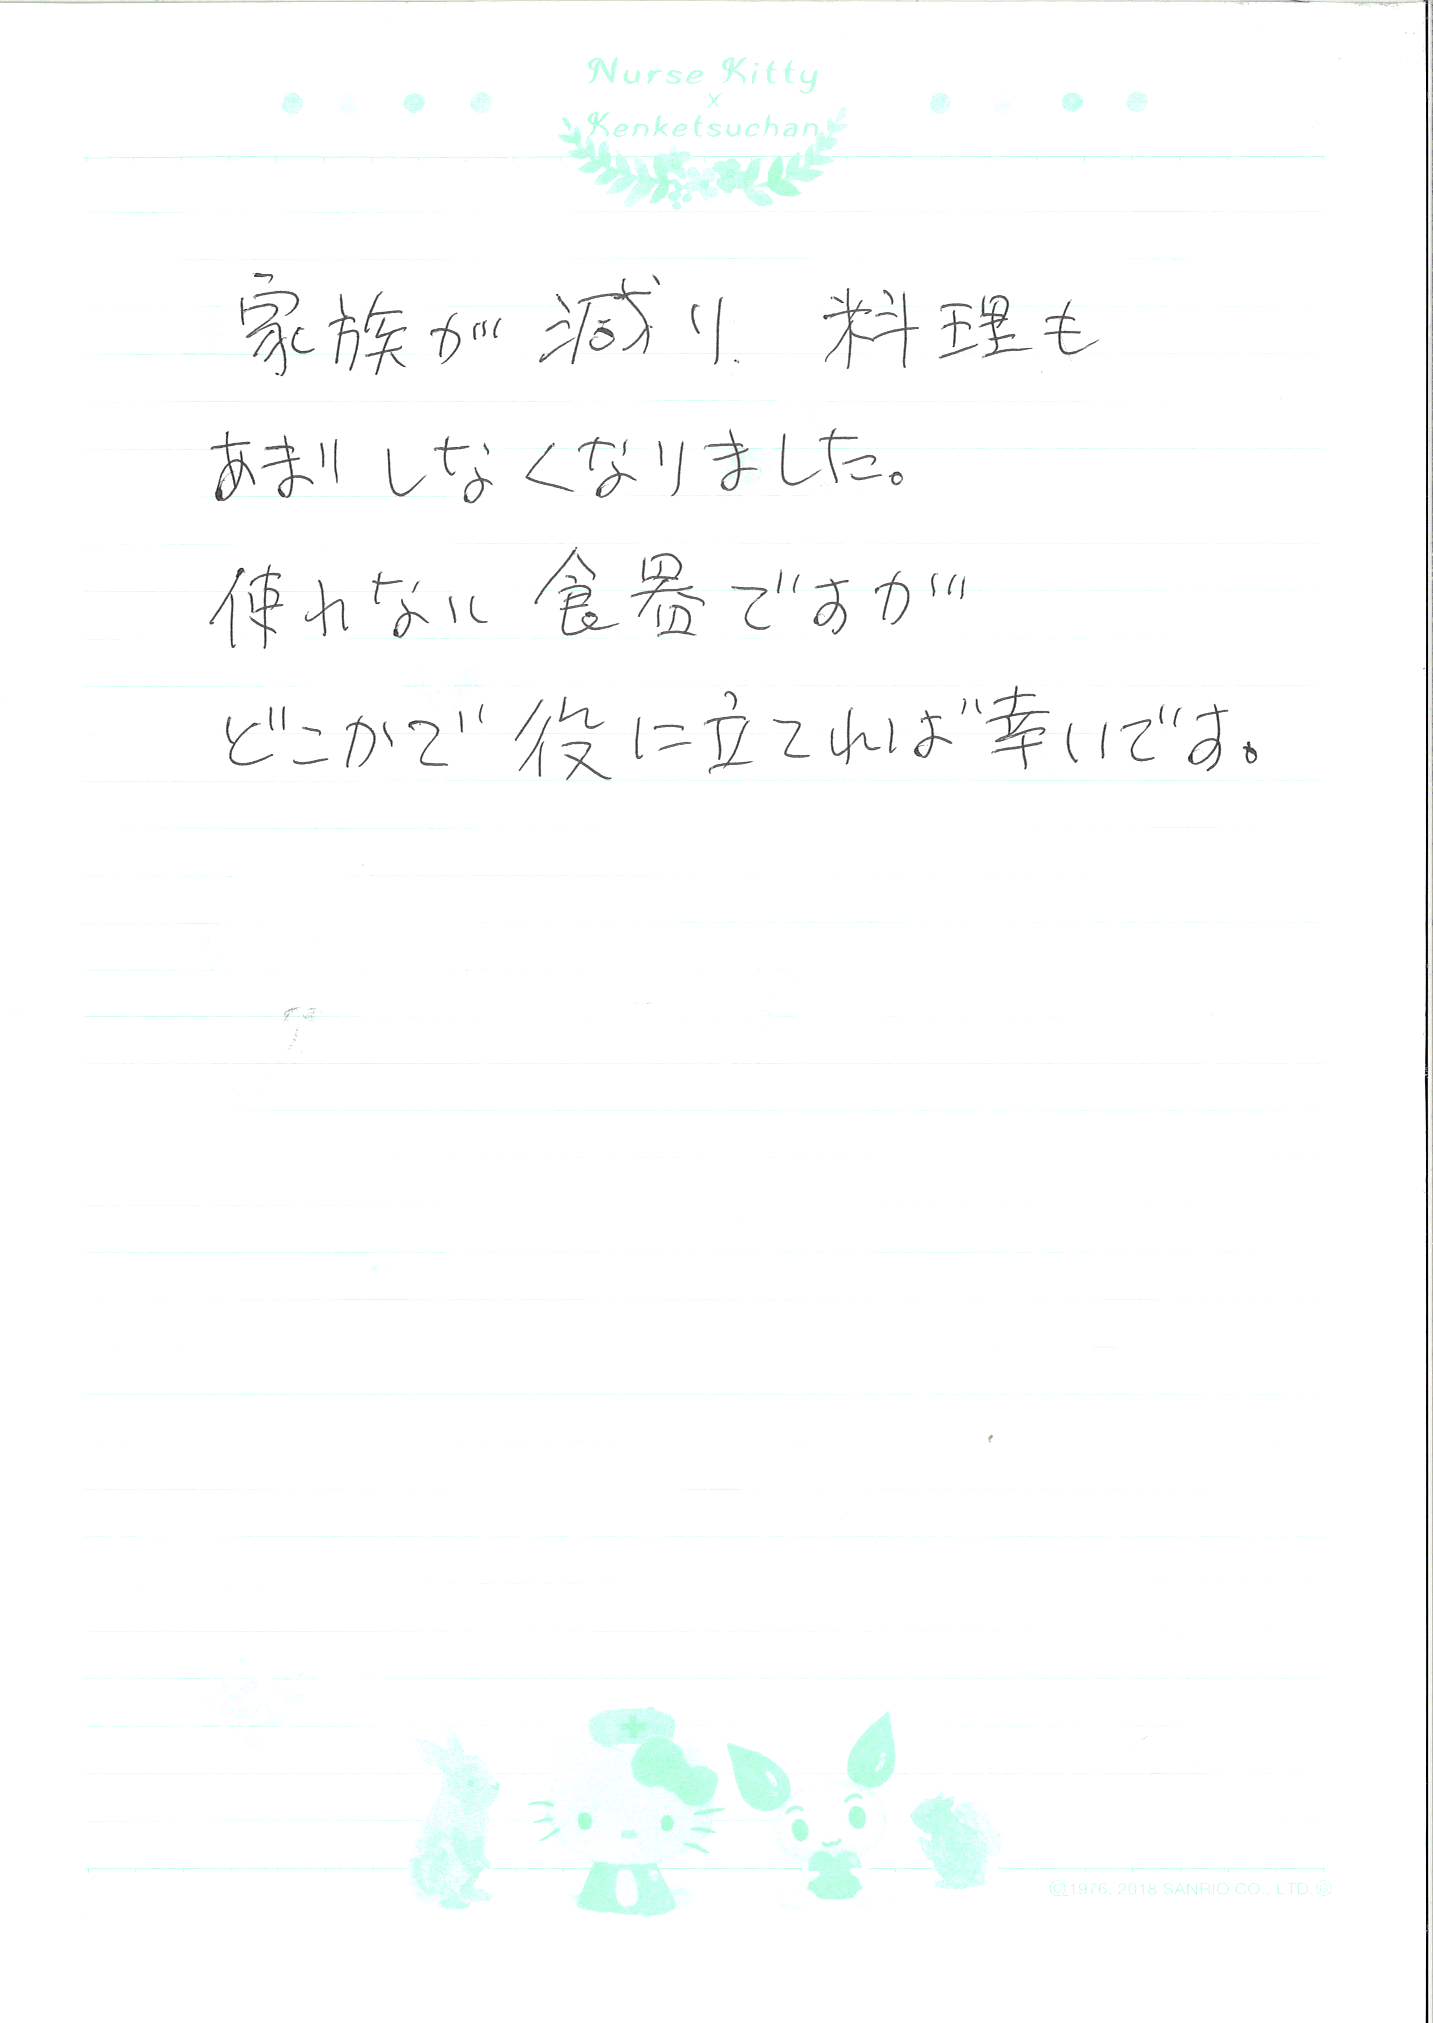 Nurse Kitty
×
Kenketsuchan
家族が減り 料理も
あまりしなくなりました。
使れない食器ですが
どこかで役に立てれば幸いです。
©1976, 2018 SANRIO CO., LTD.